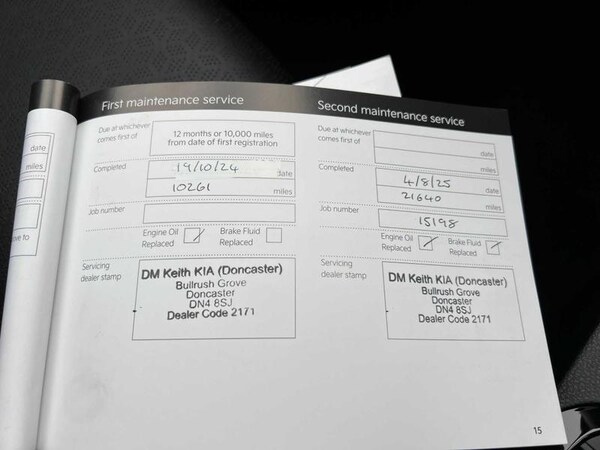 First maintenance service
Due at whichever
comes first of
12 months or 10,000 miles
from date of first registration
Completed
19/10/24
date
10261
miles
Job number
Engine Oil
Replaced
Brake Fluid
Replaced
Servicing
dealer stamp
DM Keith KIA (Doncaster)
Bullrush Grove
Doncaster
DN4 8SJ
Dealer Code 2171
Second maintenance service
Due at whichever
comes first of
date
miles
Completed
4/8/25
date
21640
miles
Job number
15198
Engine Oil
Replaced
Brake Fluid
Replaced
Servicing
dealer stamp
DM Keith KIA (Doncaster)
Bullrush Grove
Doncaster
DN4 8SJ
Dealer Code 2171
15
date
miles